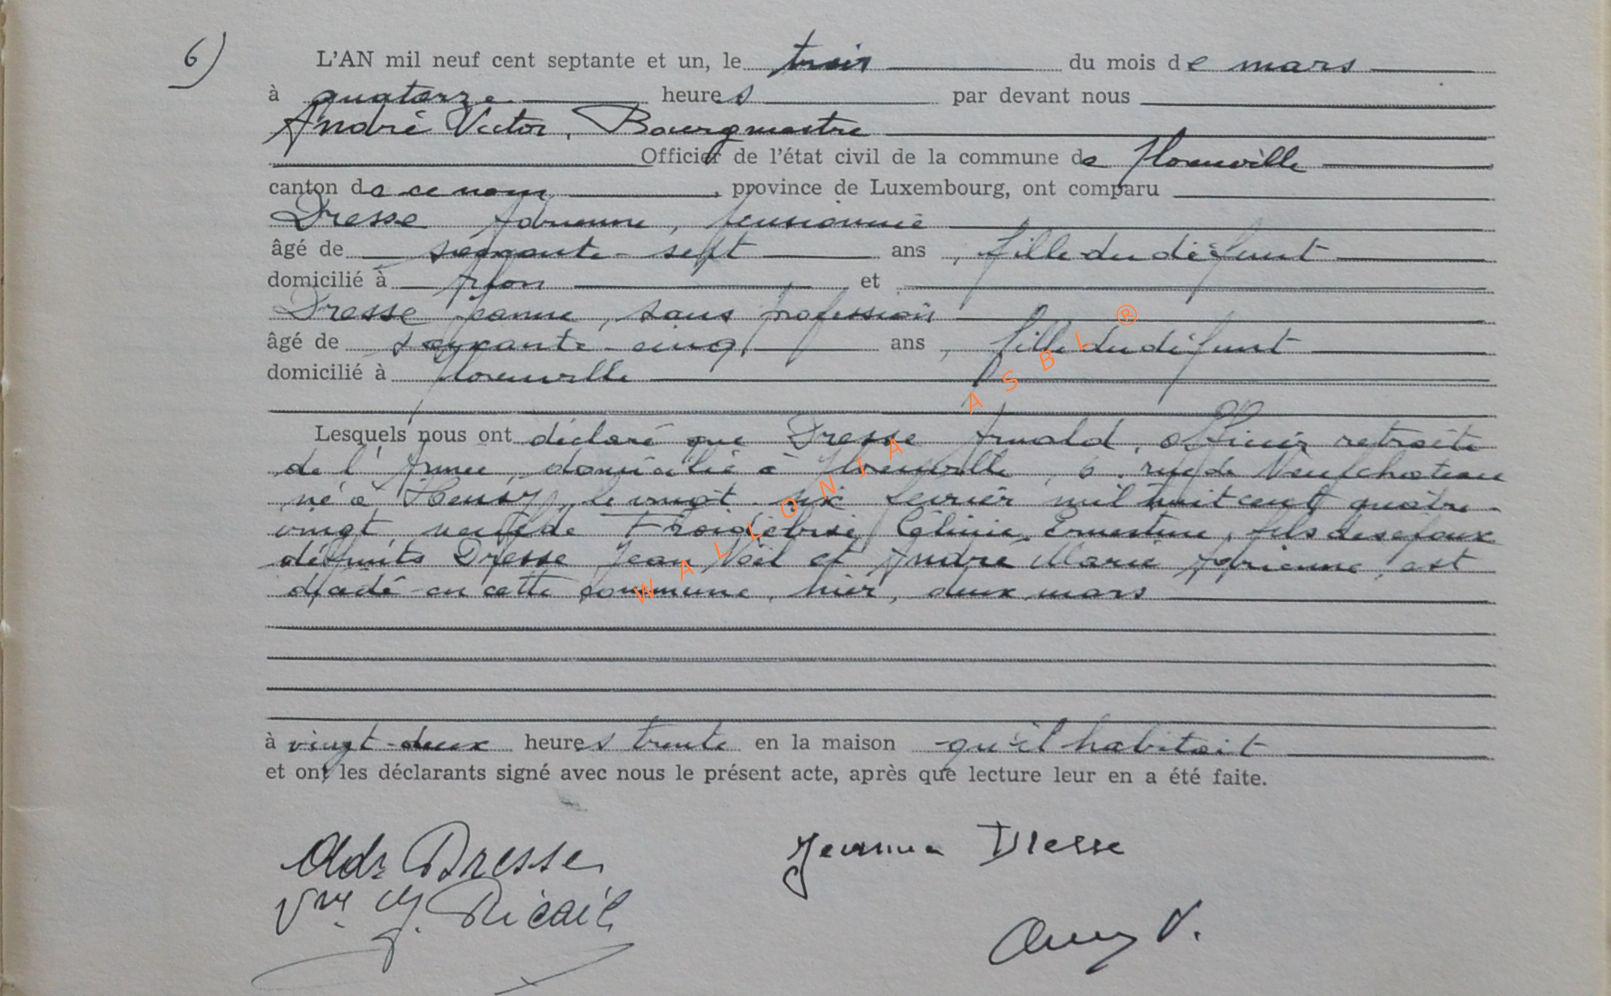 6) L'AN mil neuf cent septante et un, le trois du mois de mars
à quatorze heures par devant nous
André Victor, Bourgmestre
Officier de l'état civil de la commune de Florenville
canton de ce nom, province de Luxembourg, ont comparu
Dresse Adrienne, pensionnée
âgé de soixante-sept ans, fille du défunt
domicilié à Arlon et
Dresse Jeanne, sans profession
âgé de soixante-cinq ans, fille du défunt
domicilié à Florenville
Lesquels nous ont déclaré que Dresse Arnold, officier retraité
de l'Armée, domicilié à Florenville, 6 rue de Neufchateau
né à Heusy, le vingt-six février mil huit cent quatre-
vingt, veuf de Célinie Ernestine, fils des époux
défunts Dresse Jean Noël et André Marie Adrienne, est
décédé en cette commune, hier, deux mars
à vingt-deux heures trente en la maison qu'il habitait
et ont les déclarants signé avec nous le présent acte, après que lecture leur en a été faite.
Adr Dresse Jeanne Dresse
Vve J. Ricail
V.
WALLONIA ASBL ®